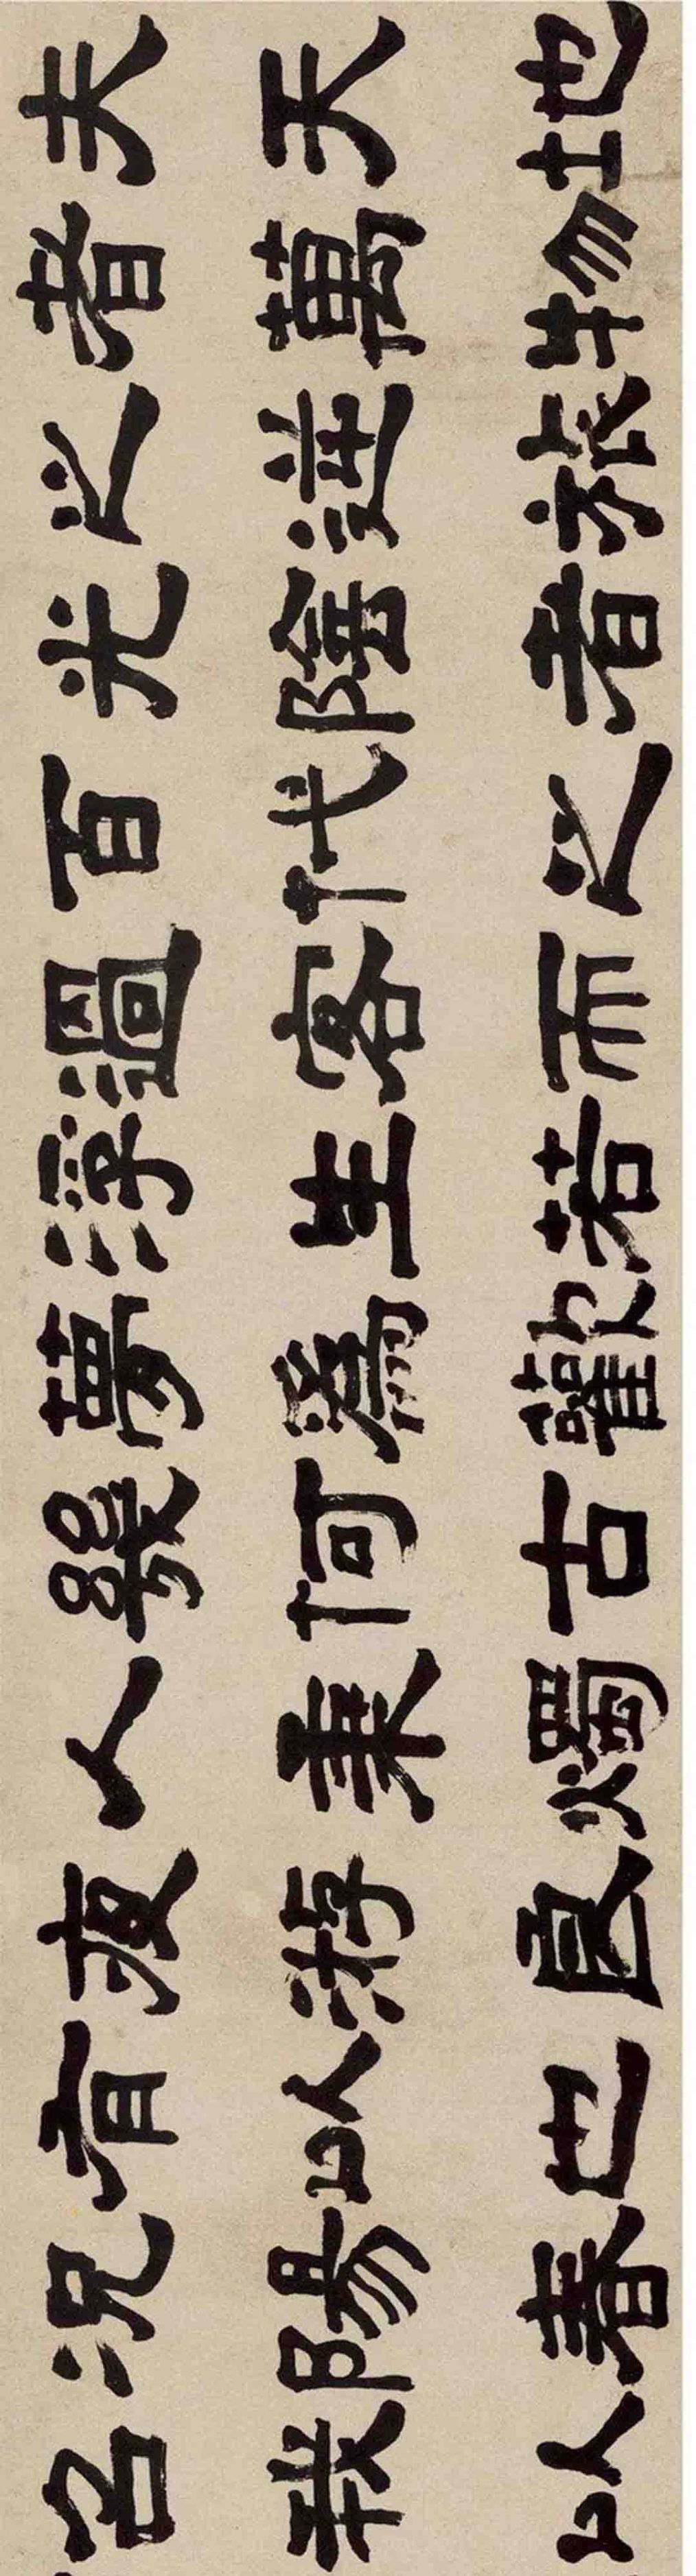 夫天地
者萬物
之逆旅
光陰者
百代之
過客而
浮生若
夢為歡
幾何古
人秉燭
夜游良
有以也
況陽春
召我以